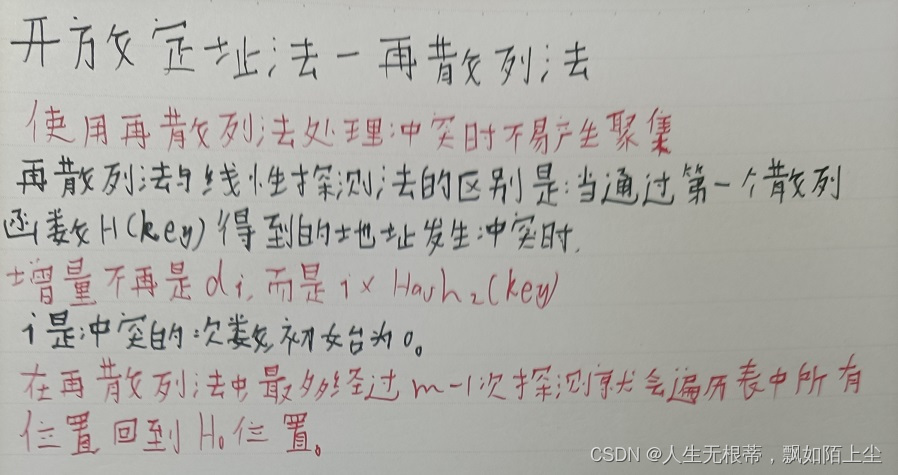 开放定址法－再散列法
使用再散列法处理冲突时不易产生聚集
再散列法与线性探测法的区别是:当通过第一个散列
函数H(key)得到的地址发生冲突时,
增量不再是di,而是i×Hash₂(key)
i是冲突的次数,初始为0。
在再散列法中,最多经过m-1次探测就会遍历表中所有
位置回到H₀位置。
CSDN @人生无根蒂，飘如陌上尘